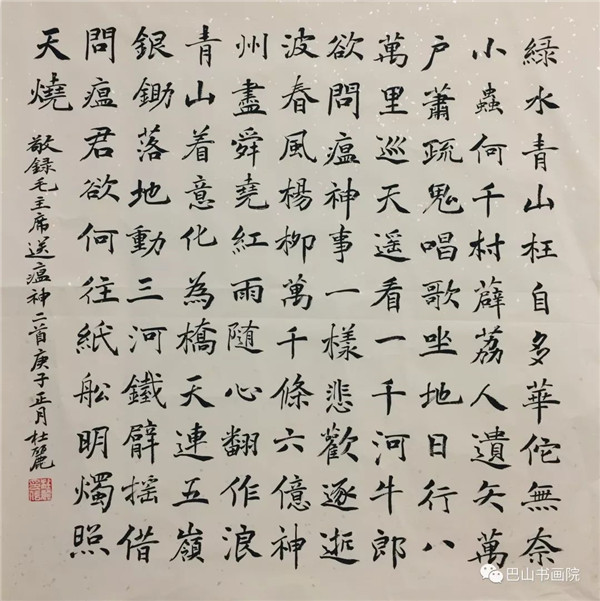 綠水青山枉自多華佗無奈
小蟲何千村薜荔人遺矢萬
户蕭疏鬼唱歌坐地日行八
萬里巡天遥看一千河牛郎
欲問瘟神事一樣悲歡逐逝
波春風楊柳萬千條六億神
州盡舜堯紅雨隨心翻作浪
青山着意化為橋天連五嶺
銀鋤落地動三河鐵臂摇借
問瘟君欲何往紙船明燭照
天燒
敬録毛主席送瘟神二首庚子正月杜麗
巴山书画院